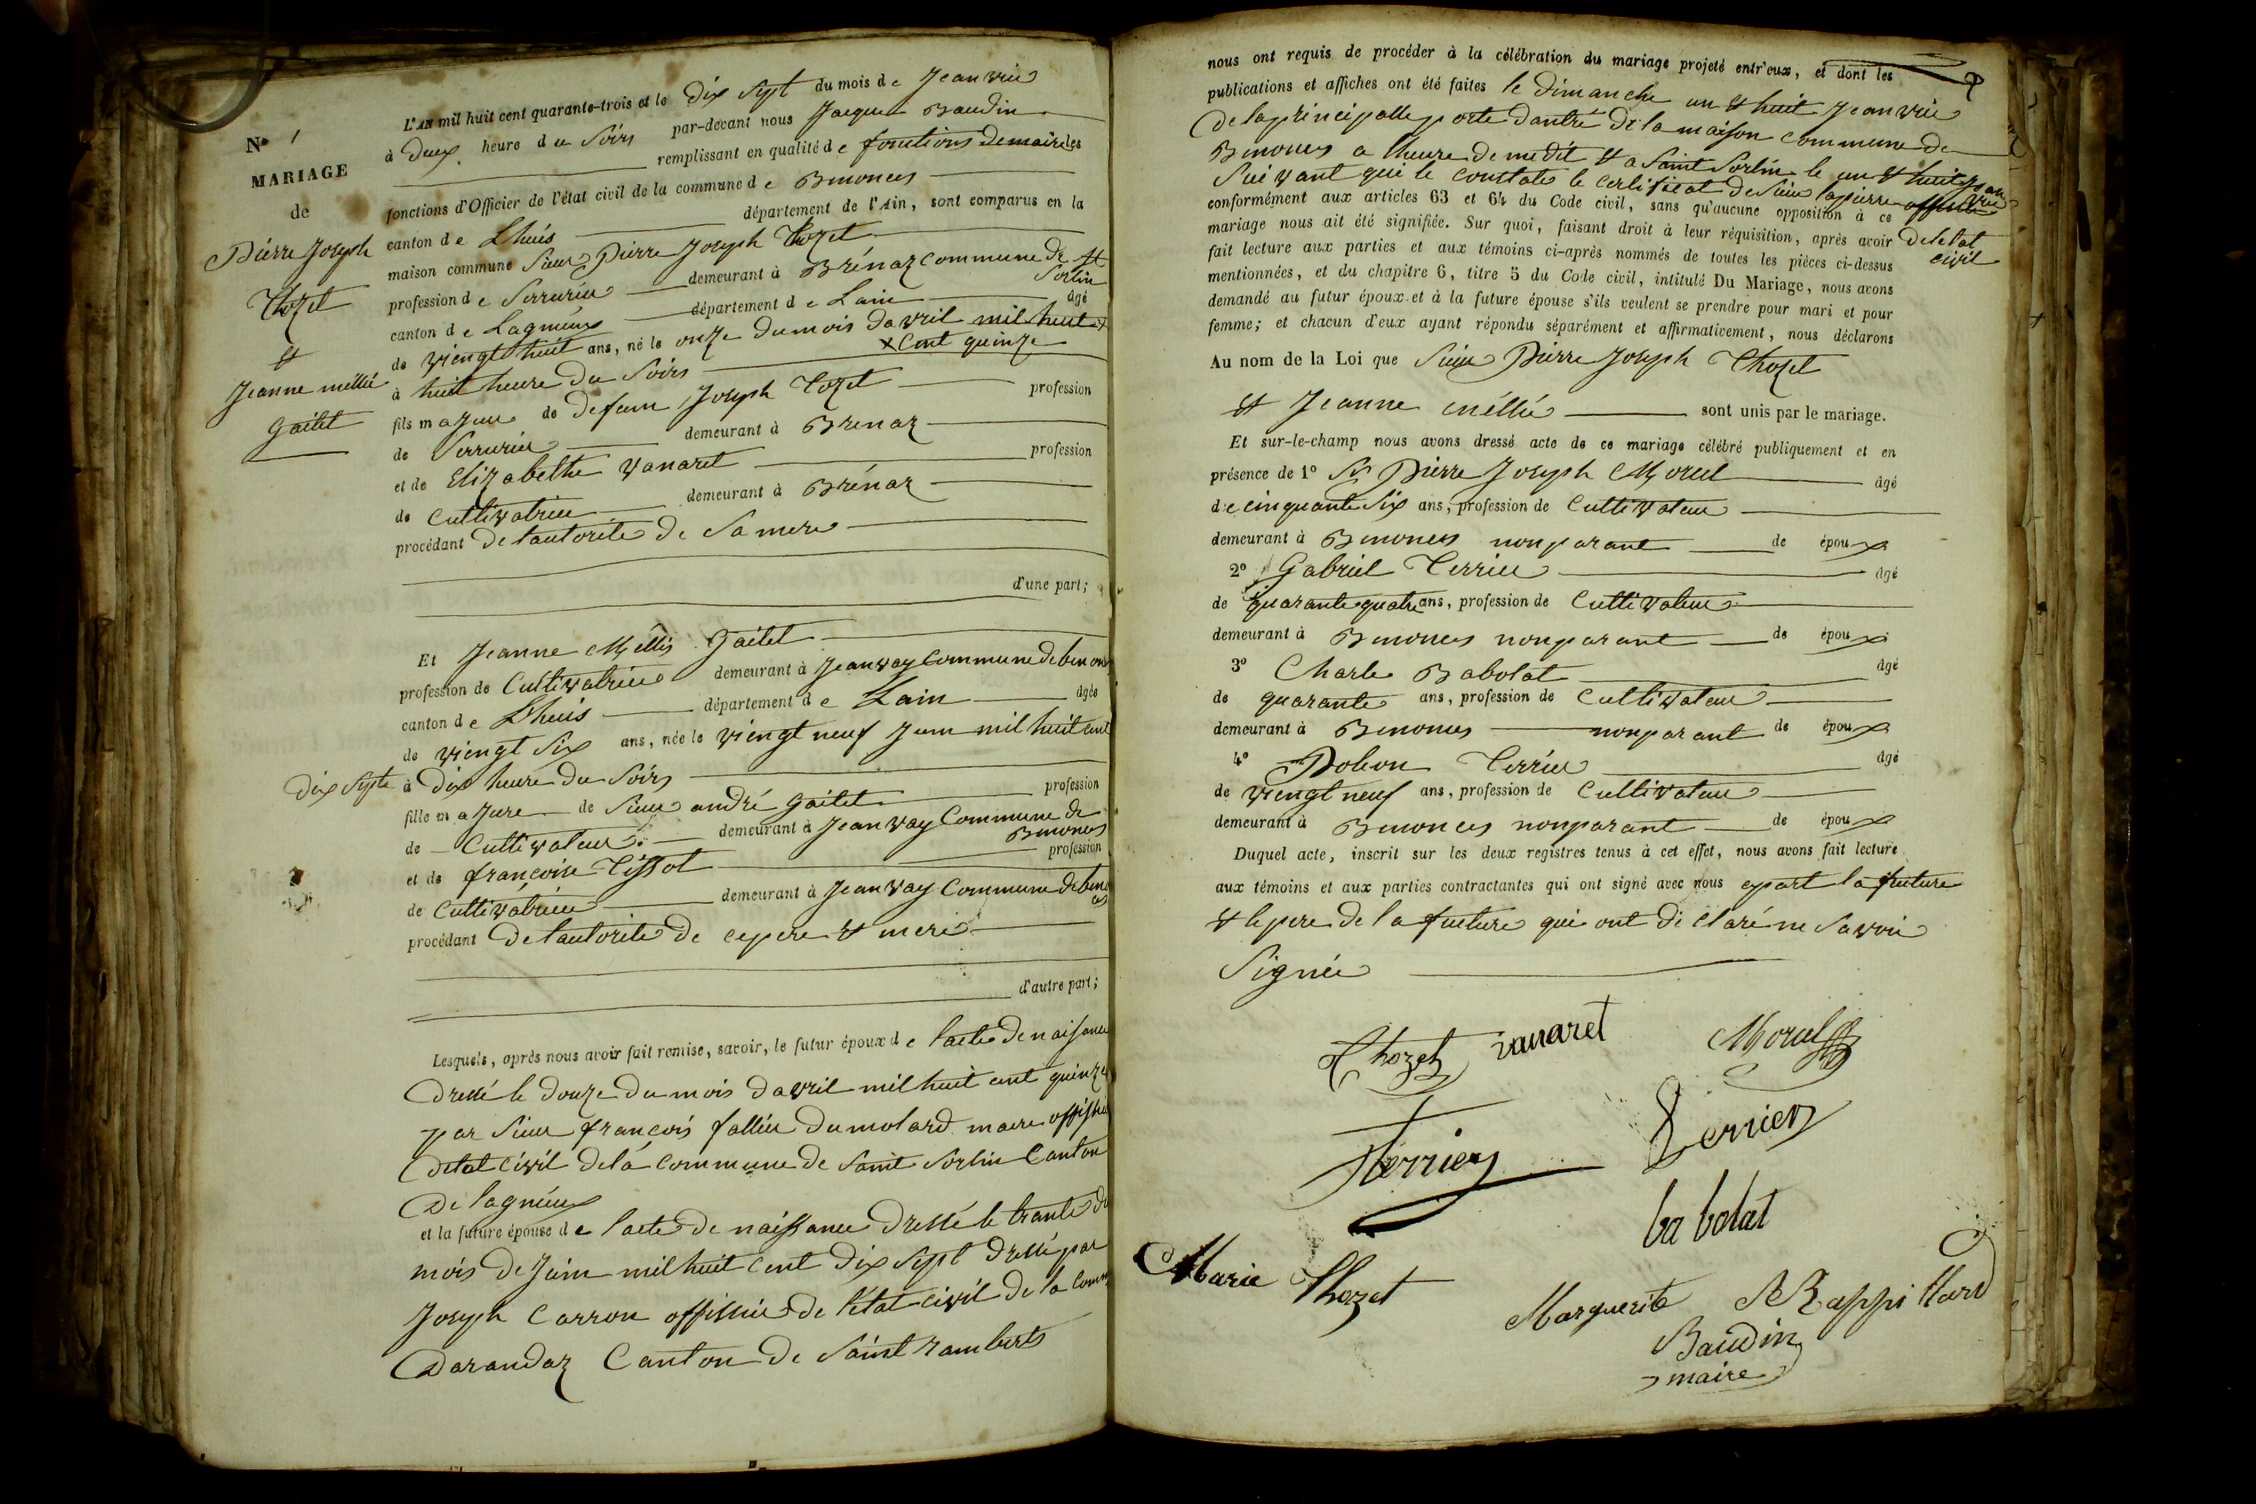 N° 1
MARIAGE
de
Pierre Joseph
thozet
et
Jeanne méllié
gaitet
L'AN mil huit cent quarante-trois et le dix sept du mois de Jeanvié
à deux heure du Soirs par-devant nous Jacque Baudin
remplissant en qualité de fontions de maire les
fonctions d'Officier de l'état civil de la commune de Benonces
canton de Lhuis département de l'Ain, sont comparus en la
maison commune Sieur Pierre Joseph thozet
profession de Serrurier demeurant à Brénaz commune de St
Sorlin
canton de Lagnieux département de Lain âgé
de viengt huit ans, né le onze du mois davril mil huit x
x Cent quinze
à huit heure du Soirs
fils majeur de defeun Joseph tozet profession
de Serrurier demeurant à Brenaz
et de Elizabethe vanaret profession
de Cultivatrice demeurant à Brénaz
procédant de lautorité de Sa mere
d'une part;
Et Jeanne Méllis gaitet
profession de Cultivatrice demeurant à Jeanvay Commune de benonc
canton de Lhuis département de Lain âgée
de viengt Six ans, née le viengt neuf Juin mil huit cent
dix Septe à dix heure du Soirs
fille majure de Sieur andré gaitet profession
de Cultivateur demeurant à Jeanvay Commune de
Benonces
et de françoise Tissot profession
de Cultivatrice demeurant à Jeanvay Commune de benon
ces
procédant de lautorité de ce pere et mere
d'autre part;
Lesquels, après nous avoir fait remise, savoir, le futur époux de lacte de naisance
dressé le douze du mois davril mil huit cent quinze
par Sieur françois fallier dumolard maire offisier
detat civil de la commune de Saint Sorlin Canton
de lagnieux
et la future épouse de lacte de naissance dressé le trante du
mois de Juin mil huit Cent dix Sept dressé par
Joseph Carron offissier de l'état civil de la Comm
Darandaz Canton de Saint rambert
nous ont requis de procéder à la célébration du mariage projeté entr'eux, et dont les
publications et affiches ont été faites le dimanche un et huit Jeanvié
de la principalle porte dantré de la maison commune de
Benonces a lheure de medit et a Saint Sorlin le un et huit Jean
vié
Suivant qui le constate le certificat de Sieur lapierre officié
de letat
civil
conformément aux articles 63 et 64 du Code civil, sans qu'aucune opposition à ce
mariage nous ait été signifiée. Sur quoi, faisant droit à leur réquisition, après avoir
fait lecture aux parties et aux témoins ci-après nommés de toutes les pièces ci-dessus
mentionnées, et du chapitre 6, titre 5 du Code civil, intitulé Du Mariage, nous avons
demandé au futur époux et à la future épouse s'ils veulent se prendre pour mari et pour
femme; et chacun d'eux ayant répondu séparément et affirmativement, nous déclarons
Au nom de la Loi que Sieur Pierre Joseph Thozet
et Jeanne mélliè sont unis par le mariage.
Et sur-le-champ nous avons dressé acte de ce mariage célébré publiquement et en
présence de 1° Sr Pierre Joseph Morel âgé
de cinquante Six ans, profession de Cultivateur
demeurant à Benonces non parant de époux
2° Gabriel Terrier âgé
de quarante quatre ans, profession de Cultivateur
demeurant à Benonces non parant de époux
3° Charle Babolat âgé
de quarante ans, profession de Cultivateur
demeurant à Benonces non parant de époux
4° Terrier âgé
de viengt neuf ans, profession de Cultivateur
demeurant à Benonces non parant de époux
Duquel acte, inscrit sur les deux registres tenus à cet effet, nous avons fait lecture
aux témoins et aux parties contractantes qui ont signé avec nous epart la fruture
et le pere de la fruture qui ont di claré ne Savoir
Signée
Thozet vanaret Morel
Terrier Terrier
babolat
Marie Thozet
Marguerite Rappillard
Baudin
maire